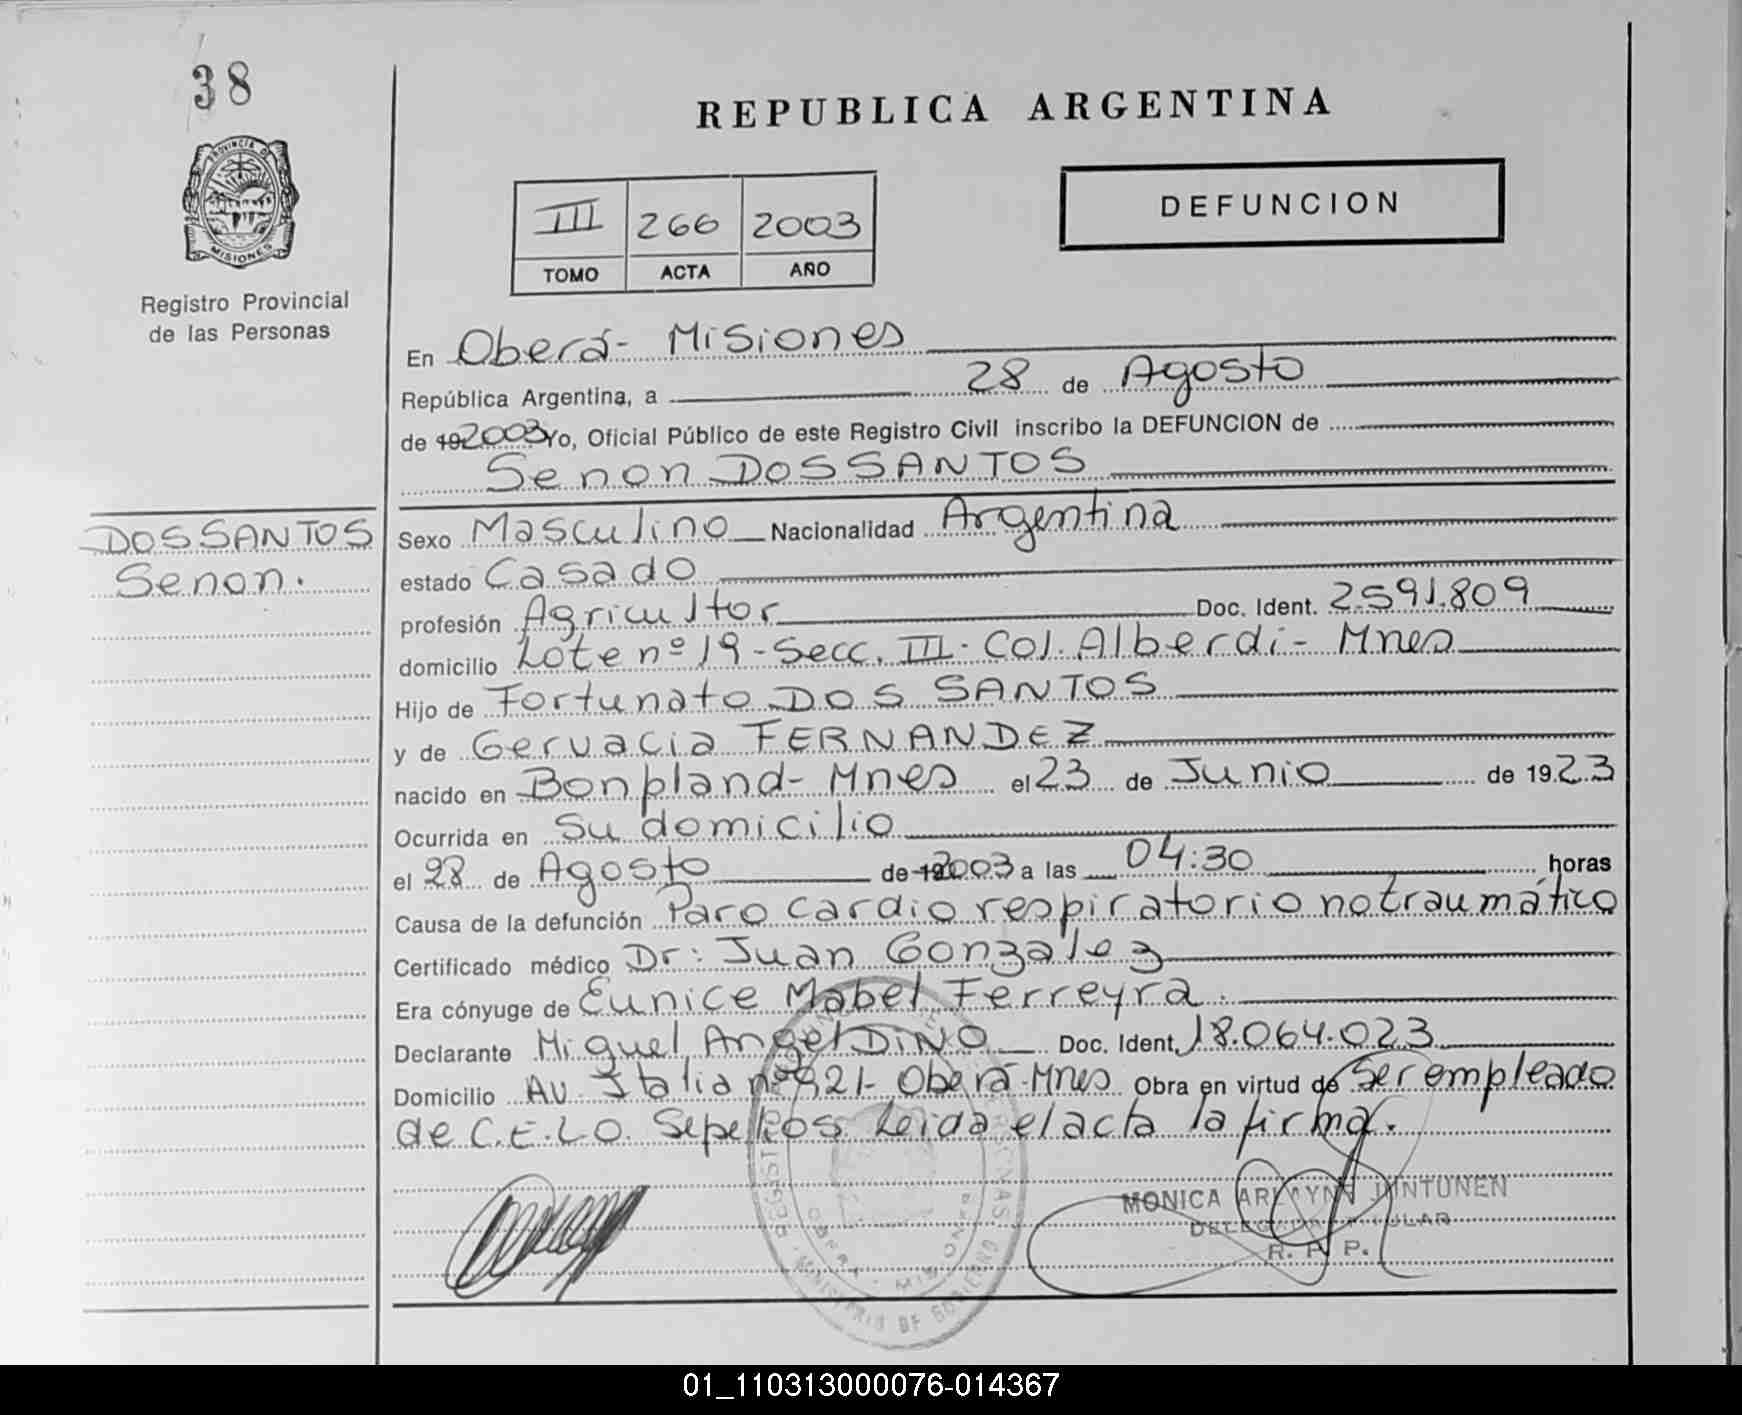 38
PROVINCIA DE
MISIONES
Registro Provincial
de las Personas
REPUBLICA ARGENTINA
DEFUNCION
III 266 2003
TOMO ACTA AÑO
En Oberá - Misiones
República Argentina, a 28 de Agosto
de 19 2003 Yo, Oficial Público de este Registro Civil inscribo la DEFUNCION de
Senon DOS SANTOS
DOS SANTOS
Senon.
Sexo Masculino Nacionalidad Argentina
estado Casado
profesión Agricultor Doc. Ident. 2.591.809
domicilio Lote nº 19 - Secc. III. Col. Alberdi - Mnes
Hijo de Fortunato DOS SANTOS
y de Gervacia FERNANDEZ
nacido en Bonpland - Mnes el 23 de Junio de 19 23
Ocurrida en Su domicilio
el 28 de Agosto de 19 2003 a las 04:30 horas
Causa de la defunción Paro cardio respiratorio no traumático
Certificado médico Dr: Juan Gonzalez
Era cónyuge de Eunice Mabel Ferreyra.
Declarante Miguel Angel DINO Doc. Ident. 18.064.023
Domicilio AV. Italia nº 921 - Oberá - Mnes Obra en virtud de Ser empleado
de C.E.L.O. Sepelios. Leida el acta la firma.
MONICA JUNTUNEN
DELEGADA TITULAR
R. P. P.
OBERA - MISIONES
MINISTERIO DE GOBIERNO
01_110313000076-014367